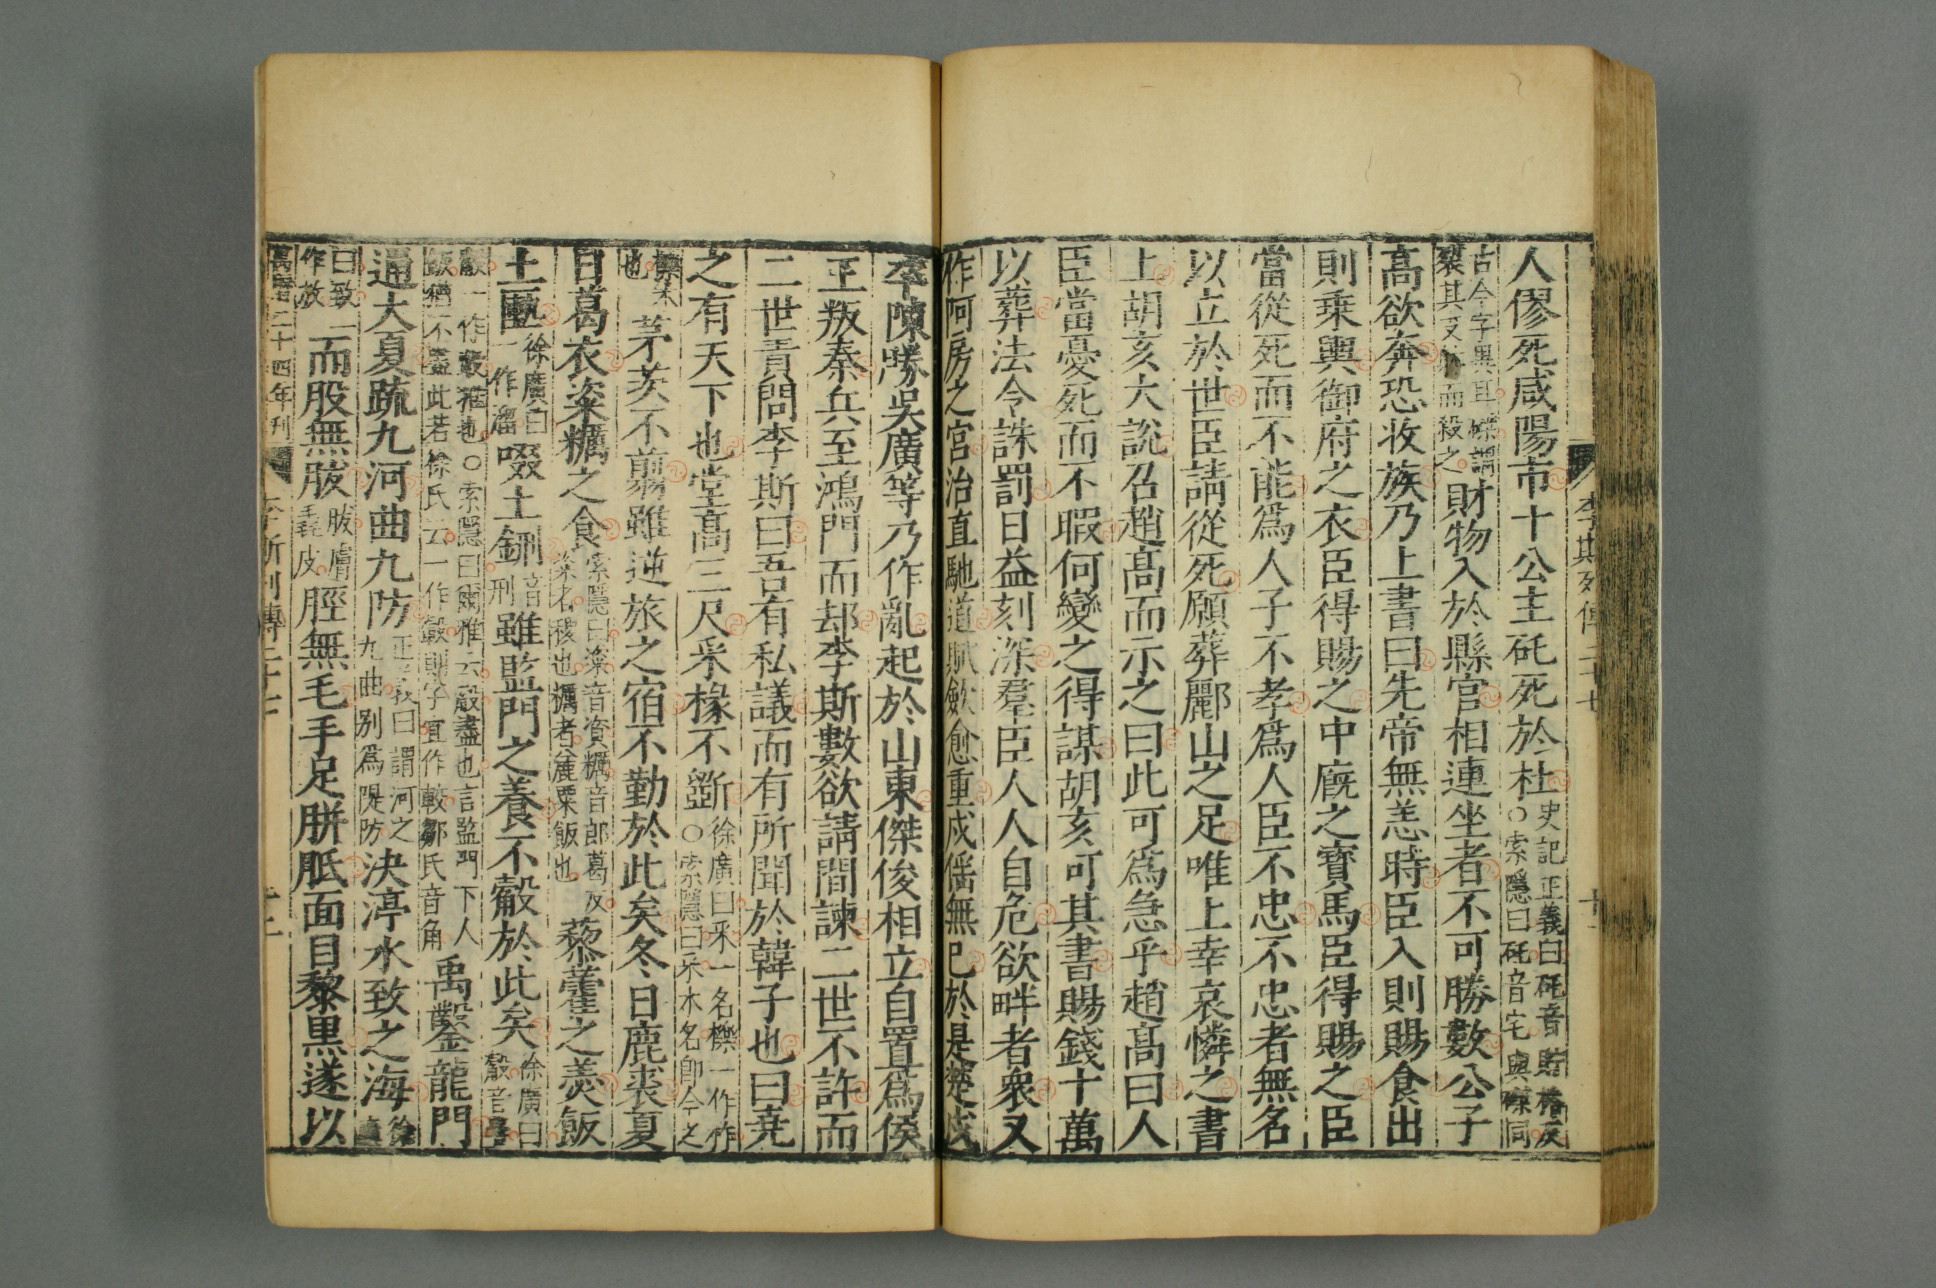 李斯列傳二十七
十一
人僇死咸陽市十公主矺死於杜史記正義曰矺音貯格反○索隱曰矺音宅與磔同
古今字異耳磔謂裂其支體而殺之財物入於縣官相連坐者不可勝數公子
高欲奔恐收族乃上書曰先帝無恙時臣入則賜食出
則乗輿御府之衣臣得賜之中廐之寶馬臣得賜之臣
當從死而不能爲人子不孝爲人臣不忠不忠者無名
以立於世臣請從死願葬酈山之足唯上幸哀憐之書
上胡亥大說召趙髙而示之曰此可爲急乎趙髙曰人
臣當憂死而不暇何變之得謀胡亥可其書賜錢十萬
以葬法令誅罰日益刻深羣臣人人自危欲畔者衆又
作阿房之宮治直馳道賦斂愈重戍傜無已於是楚戍
卒陳勝吳廣等乃作亂起於山東傑俊相立自置爲侯
王叛秦兵至鴻門而却李斯數欲請間諫二世不許而
二世責問李斯曰吾有私議而有所聞於韓子也曰堯
之有天下也堂髙三尺采椽不斲徐廣曰采一名櫟一作柞○索隱曰采木名卽今之
櫟木也茅茨不翦雖逆旅之宿不勤於此矣冬日鹿裘夏
日葛衣粢糲之食索隱曰粢音資糲音郎葛反粢名稷也糲者麄粟飯也藜藿之羹飯
土匭徐廣曰一作溜啜土鉶音刑雖監門之養不觳於此矣徐廣曰觳音學
觳一作㱿推也○索隱曰爾雅云觳盡也言監門下人飯猶不盡此若徐氏云一作㱿則字宜作較鄒氏音角禹鑿龍門
通大夏疏九河曲九防正義曰謂河之九曲别爲隄防决渟水致之海徐廣
曰致一作放而股無胈胈膚毳皮脛無毛手足胼胝面目黎黒遂以
萬曆二十四年刊
李斯列傳二十七
十二